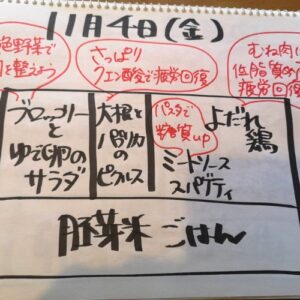 11月4日(金)
色野菜で
を整えよう
さっぱり
クエン酸で疲労回復
むね肉
低脂質
疲労回復
ブロッコリー
と
ゆで卵の
サラダ
大根と
パプリカ
の
ピクルス
パスタで
糖質up
よだれ
鶏
ミートソース
スパゲティ
胚芽米ごはん